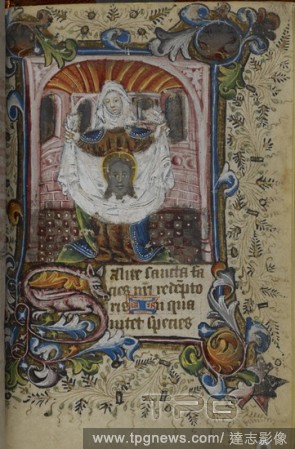 Salue sancta fa
cies nr̄i redēpto
ris In qua
nitet species
TPG
www.tpgnews.com/達志影像